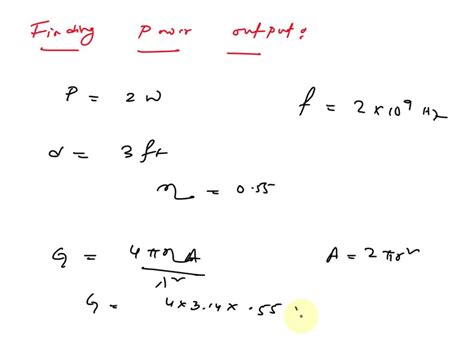 Finding Power output:
P = 2 W
f = 2 × 10⁹ Hz
d = 3 ft
η = 0.55
G = 4πηA / λ²
A = 2πr²
G = 4 × 3.14 × .55